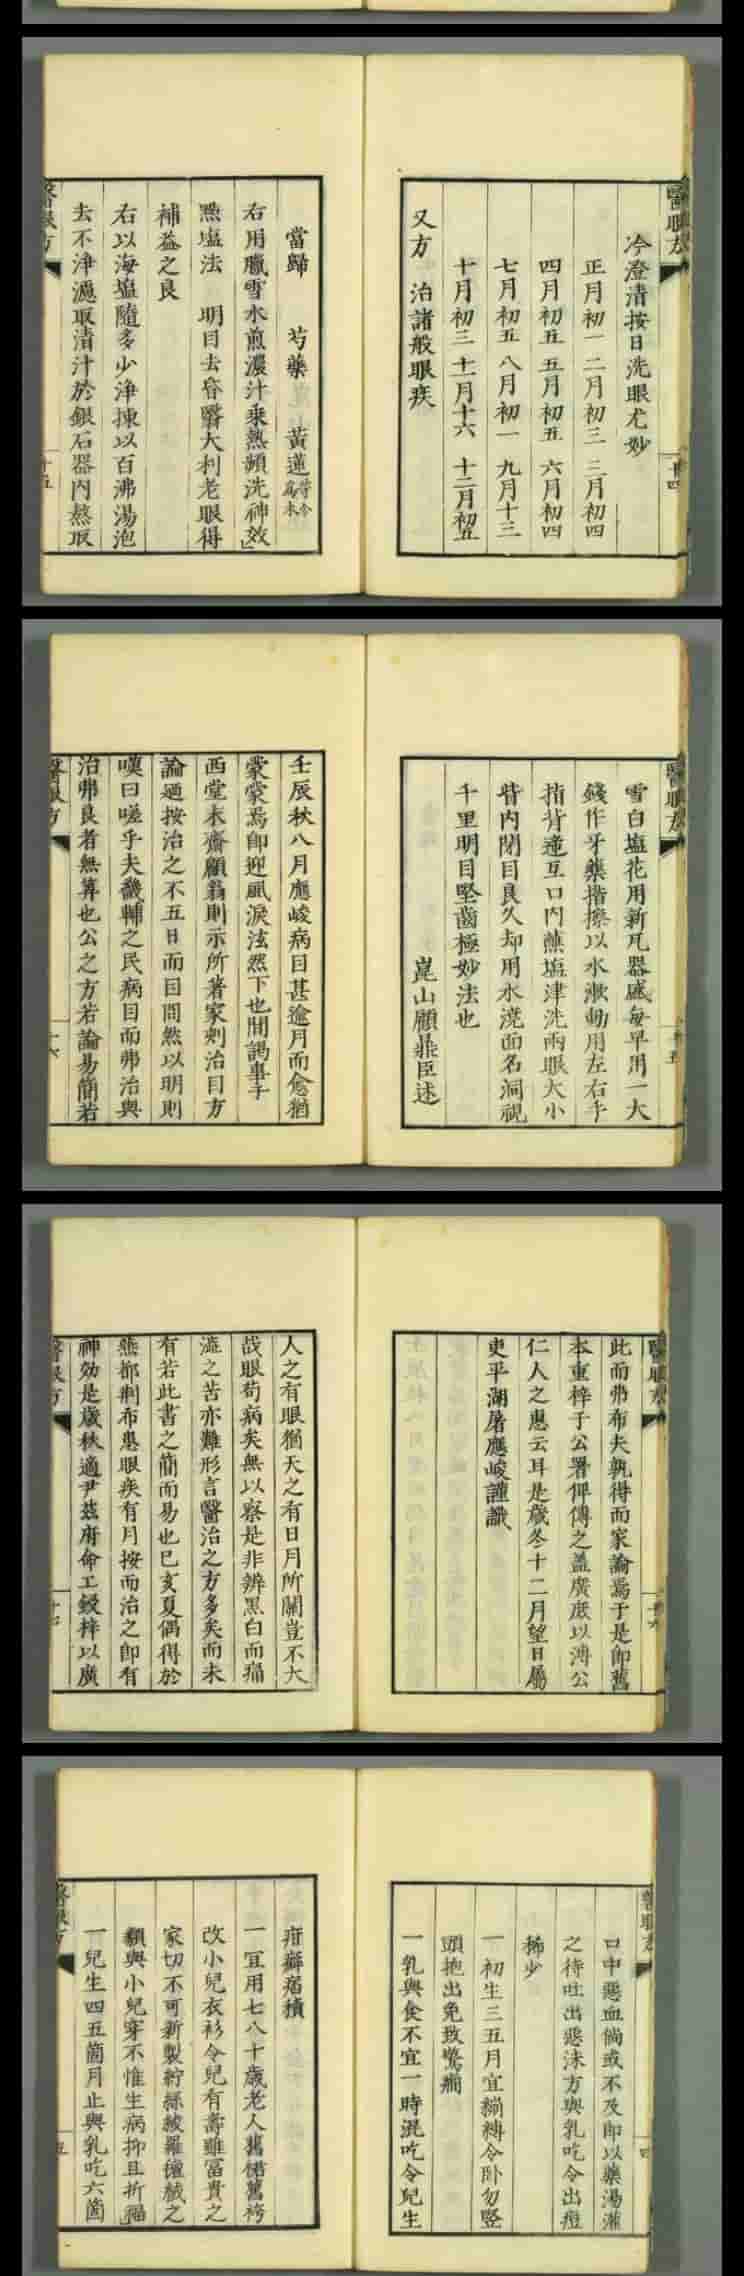 醫眼方
冷澄清按日洗眼尤妙
正月初一 二月初三 三月初四
四月初五 五月初五 六月初四
七月初五 八月初一 九月十三
十月初三 十一月十六 十二月初五
又方 治諸般眼疾
當歸 芍藥 黃連
右用臘雪水煎濃汁乘熱頻洗神效
㸃塩法 明目去昏翳大利老眼得
補益之良
右以海塩隨多少淨揀以百沸湯泡
去不淨濾取清汁於銀石器內熬取
醫眼方
十五
醫眼方
雪白塩花用新瓦器盛每早用一大
錢作牙藥揩擦以水漱動用左右手
指背遞互口內蘸塩津洗兩眼大小
眥內閉目良久却用水洗面名洞視
千里明目堅齒極妙法也
崑山顧鼎臣述
壬辰秋八月應峻病目甚逾月而愈猶
蒙蒙焉即迎風淚泫然下也間謁事于
西堂未齋顧翁則示所著家刻治目方
論迺按治之不五日而目間然以明則
嘆曰嗟乎夫畿輔之民病目而弗治與
治弗良者無筭也公之方若論易簡若
醫眼方
十六
醫眼方
此而弗布夫孰得而家諭焉于是即舊
本重梓于公署俾傳之益廣庶以溥公
仁人之惠云耳是歲冬十二月望日屬
吏平湖屠應峻謹識
人之有眼猶天之有日月所關豈不大
哉眼苟病矣無以察是非辨黑白而痛
澁之苦亦難形言醫治之方多矣而未
有若此書之簡而易也己亥夏偶得於
燕都荆布患眼疾有月按而治之即有
神効是歲秋適尹茲府命工鋟梓以廣
醫眼方
十七
醫眼方
口中惡血倘或不及即以藥湯灌
之待吐出惡沫方與乳吃令出痘
稀少
一初生三五月宜綳縛令卧勿竪
頭抱出免致驚癇
一乳與食不宜一時混吃令兒生
疳癖痞積
一宜用七八十歲老人舊裙舊袴
改小兒衣衫令兒有壽雖富貴之
家切不可新製紵絲綾羅氊絨之
類與小兒穿不惟生病抑且折福
一兒生四五箇月止與乳吃六箇
醫眼方
五